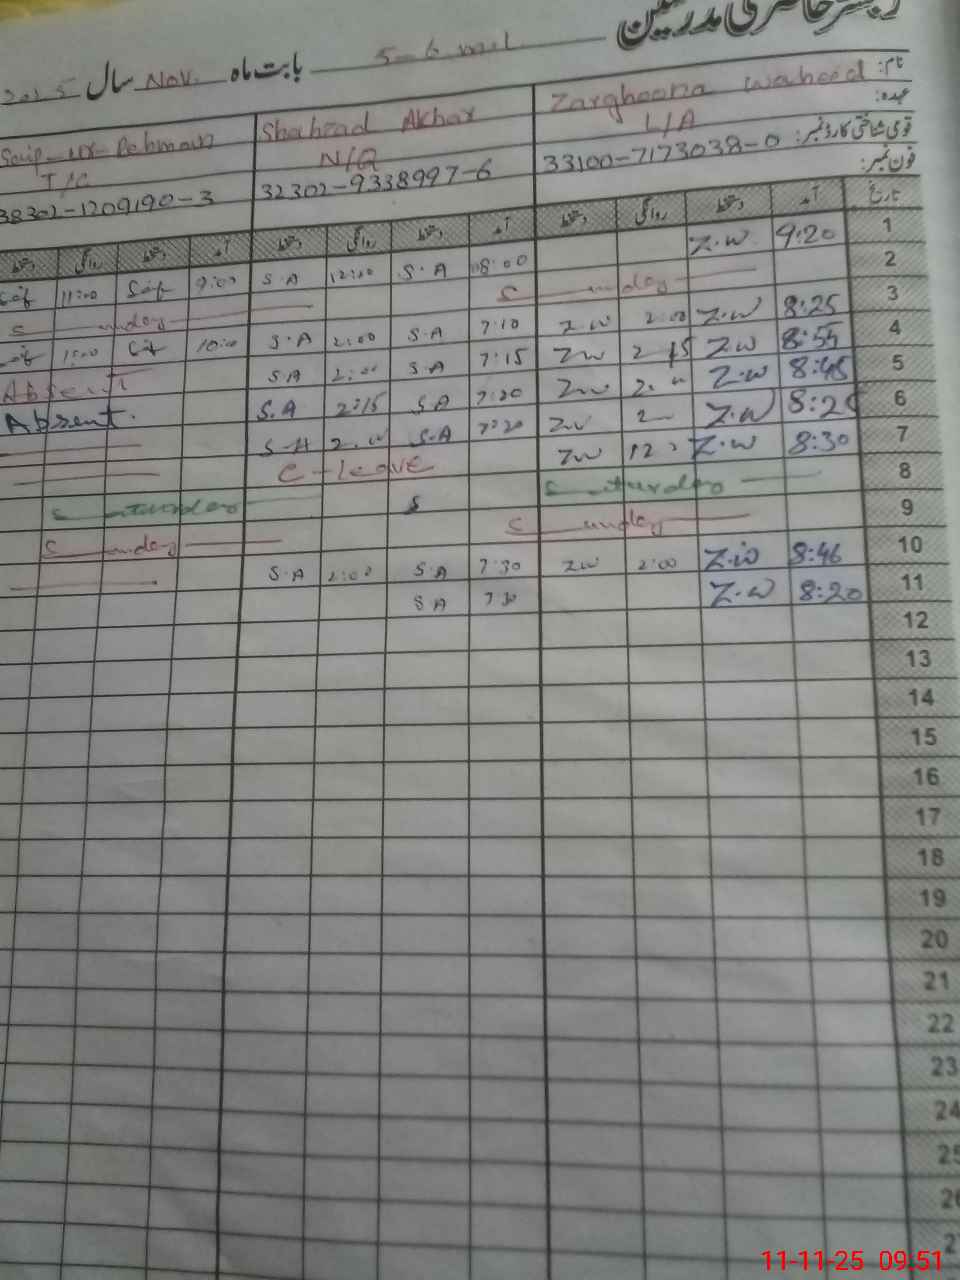 رجسٹر حاضری مدرسین
بابت ماہ Nov. سال 2025
نام: Zarghoona Waheed Shahzad Akhar
عہدہ: L/A N/Q T/C
قومی شناختی کارڈ نمبر: 33100-7173038-0 32302-9338997-6 38302-1209190-3
فون نمبر:
تاریخ آمد دستخط روانگی دستخط آمد دستخط روانگی دستخط آمد دستخط روانگی دستخط
1 9:20 Z.W 08:00 S.A 12:00 S.A 9:00 Saif 11:00 Saif
2 Sunday Sunday
3 8:25 Z.W 2:00 ZW 7:10 S.A 2:00 S.A 10:00
4 8:54 Z.W 2 15 ZW 7:15 S.A 2:00 S.A Absent
5 8:45 Z.W ZW 7:20 S.A 2:15 S.A Absent.
6 Z.W ZW 7:20 S.A S.A
7 8:30 Z.W ZW C-leave
8 Saturday Saturday
9 Sunday Sunday
10 8:46 Z.W 2:00 ZW 7:30 S.A 2:00 S.A
11 8:20 Z.W 7:30 S.A
12
13
14
15
16
17
18
19
20
21
22
23
24
11-11-25 09:51